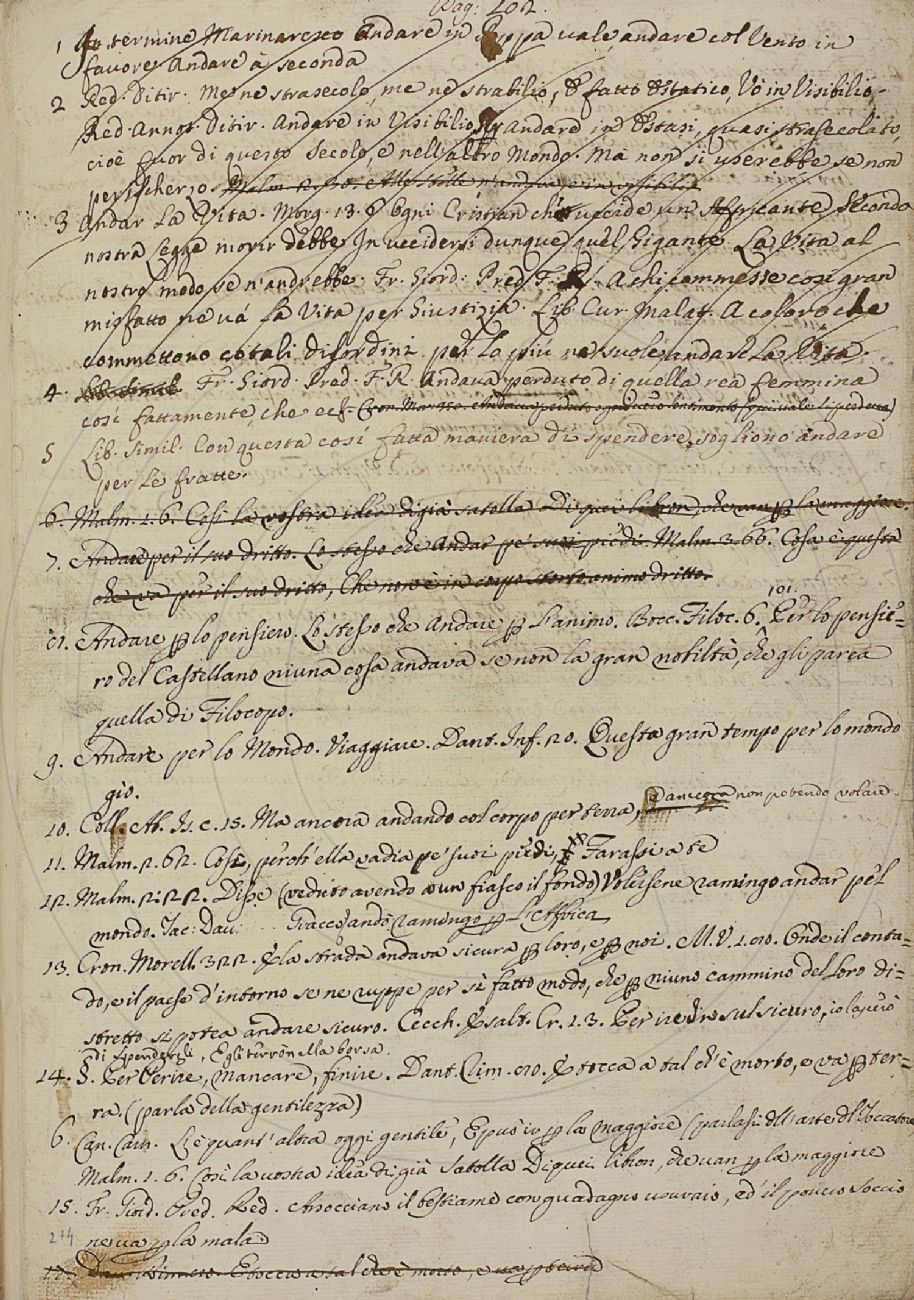 Pag: 202.
1 In termine Marinaresco Andare in Poppa vale, andare col Vento in
favore, Andare à seconda
2 Red. Ditir. Me ne strasecolo, me ne strabilio, E fatto Estatico, Vò in Visibilio,
Red. Annot. Ditir. Andare in Visibilio, Andare in Estasi, quasi strasecolato,
cioè fuor di questo Secolo, e nell'altro Mondo. Ma non si userebbe se non
per ischerzo.
3 Andar La Vita. Morg. 13. Ogni Cristian ch'uccide un Africante, Secondo
nostra Legge morir debbe, In uccidersi dunque quel Gigante La Vita al
nostro modo se n'andrebbe. Fr. Giord. Pred. F. R. A chi commesse così gran
misfatto ne vá La Vita per Giustizia. Lib. Cur. Malat. A coloro che
commettono cotali disordini per lo più ne suole andare La Vita.
4. Fr. Giord. Pred. F. R. Andava perduto di quella rea femmina
così fattamente, che ec.
5 Lib. Simil. Con questa così fatta maniera di spendere, sogliono andare
per Le fratte.
6. Malm. 1. 6. Così la vostra idea digià satolla Di quei libron, che van p la maggiore.
7. Andare per il suo dritto. Lo stesso che Andar pe' suoi piedi. Malm. 3. 66. Cosa è questa
che va per il suo dritto, Che non è in corpo storto animo dritto.
Andare p lo pensiero. Lo stesso che Andare p L'animo. Bocc. Filoc. 6. 101. Per lo pensie=
ro del Castellano niuna cosa andava se non la gran nobiltà, che gli parea
quella di Filocopo.
9. Andare per lo Mondo. Viaggiare. Dant. Inf. 20. Questa gran tempo per lo mondo
gio.
10. Coll. Ab. Is. c. 15. Ma ancora andando col corpo per terra, non potendo volare.
11. Malm. 2. 62. Così, perch'ella vadia pe' suoi piedi, Farassi a te
12. Malm. 2. 22. Disse (veduto avendo a un fiasco il fondo) Volersene ramingo andar pel
mondo. Tac: Dav: ... andò ramingo p L'Affrica
13. Cron. Morell. 322. E la strada andava sicura p loro, e p noi. M. V. 1. 80. Onde il conta=
do, e il paese d'intorno se ne ruppe per sì fatto modo, che p niuno cammino del loro di=
stretto si potea andare sicuro. Cecch. Esalt. Cr. 1. 3. Per ire sul sicuro, io lascio
di spendergli, E gli terrò nella borsa.
14. §. Per Perire, mancare, finire. Dant. Rim. 80. E tocca a tal ch'è morto, e va p ter=
ra. (parla della gentilezza)
6. Can. Carn. L'è quant'altra oggi gentile, E può ir p la maggiore (parlasi dell'arte
Malm. 1. 6. Così la vostra idea digià satolla Di quei libron, che van p la maggiore
15. Fr. Giord. Pred. Red. Arrocciano il bestiame con guadagno usuraio, ed il povero Soccio
214 ne va p la mala
17. Dant. Rim. 80. E tocca a tal ch'è morto, e va p terra